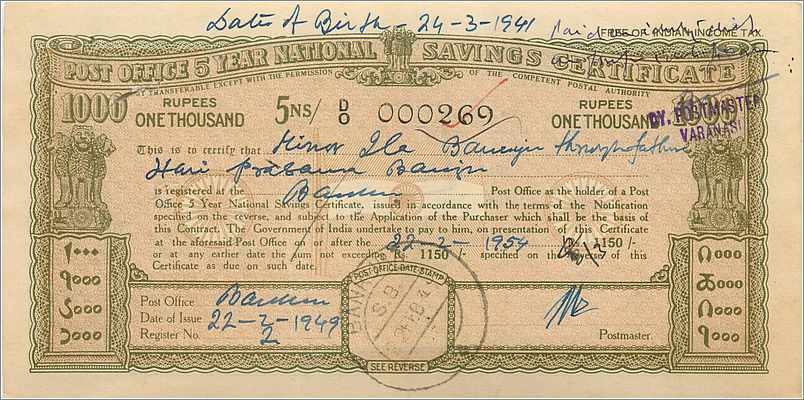 Date of Birth - 24-3-1941
FREE OF INDIAN INCOME TAX.
POST OFFICE 5 YEAR NATIONAL SAVINGS CERTIFICATE
NOT TRANSFERABLE EXCEPT WITH THE PERMISSION OF THE COMPETENT POSTAL AUTHORITY
1000 RUPEES ONE THOUSAND 5NS/ D/O 000269 RUPEES ONE THOUSAND 1000
DY. POSTMASTER
VARANASI
This is to certify that Minor Ila Banerjee through father
Hari Prasanna Banerjee
is registered at the Post Office as the holder of a Post
Office 5 Year National Savings Certificate, issued in accordance with the terms of the Notification
specified on the reverse, and subject to the Application of the Purchaser which shall be the basis of
this Contract. The Government of India undertake to pay to him, on presentation of this Certificate
at the aforesaid Post Office on or after the 22-2-1954 Rs. 1150/-
or at any earlier date the sum not exceeding Rs. 1150/- specified on the reverse of this
Certificate as due on such date.
POST OFFICE DATE STAMP
S.B
Post Office
Date of Issue 22-2-1949
Register No. 2
Postmaster.
(SEE REVERSE)